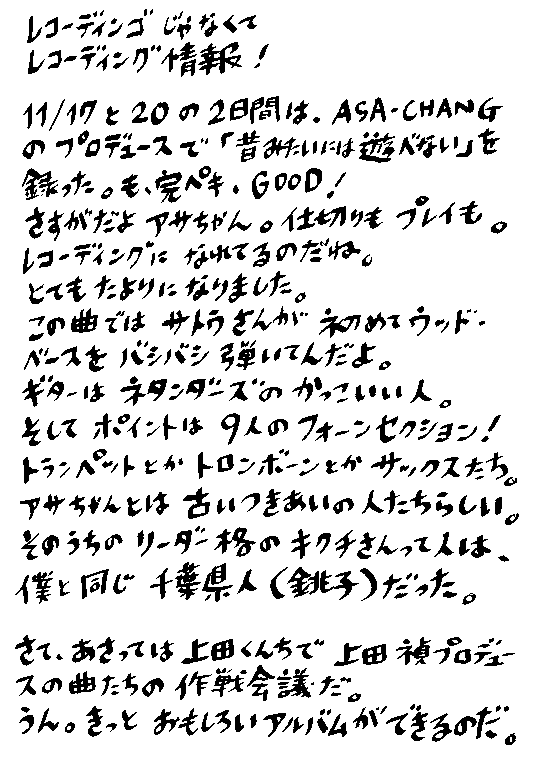 レコーディンゴじゃなくて
レコーディング情報！
11/17と20の2日間は、ASA-CHANG
のプロデュースで「昔みたいには遊べない」を
録った。も、完ペキ、GOOD！
さすがだよアサちゃん。仕切りもプレイも。
レコーディングになれてるのだね。
とてもたよりになりました。
この曲ではサトウさんが初めてウッド・
ベースをバシバシ弾いてんだよ。
ギターはネタンダーズのかっこいい人。
そしてポイントは9人のフォーンセクション！
トランペットとかトロンボーンとかサックスたち。
アサちゃんとは古いつきあいの人たちらしい。
そのうちのリーダー格のキクチさんって人は、
僕と同じ千葉県人（銚子）だった。
さて、あさっては上田くんちで上田禎プロデュー
スの曲たちの作戦会議だ。
うん。きっとおもしろいアルバムができるのだ。